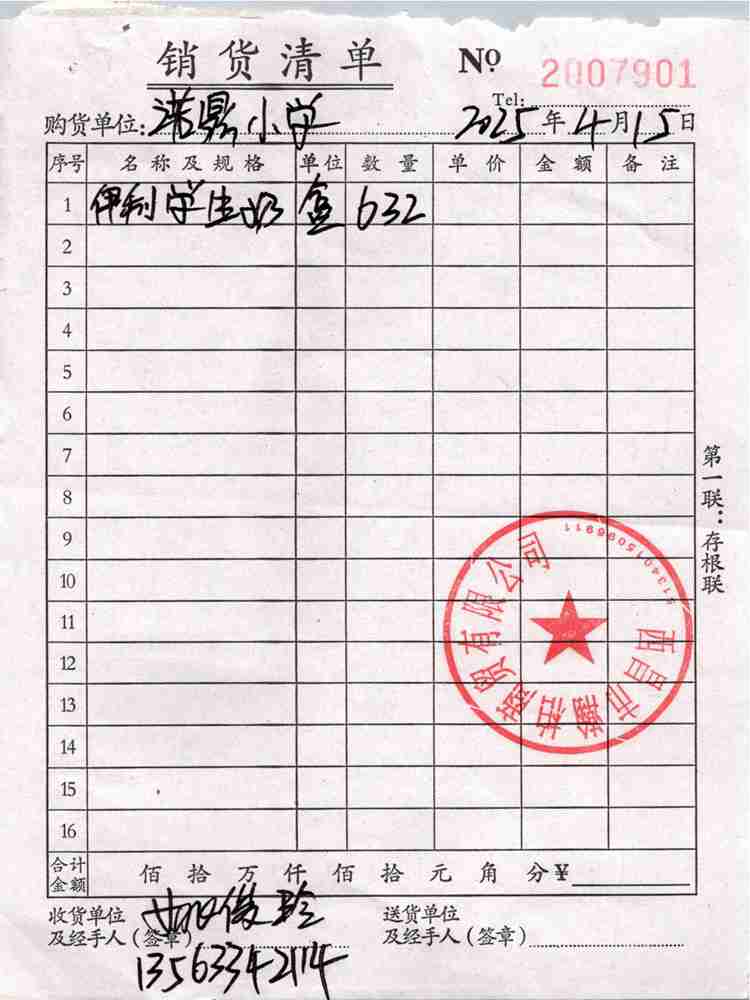 销货清单 № 2007901
Tel:
购货单位: 诺鼎小学 2025年4月15日
序号 名称及规格 单位 数量 单价 金额 备注
1 伊利学生奶 盒 632
2
3
4
5
6
7
8
9
10
11
12
13
14
15
16
合计金额 佰拾万仟佰拾元角分¥
收货单位及经手人(签章)
13563342114
送货单位及经手人(签章)
第一联:存根联
西昌市 商贸有限公司